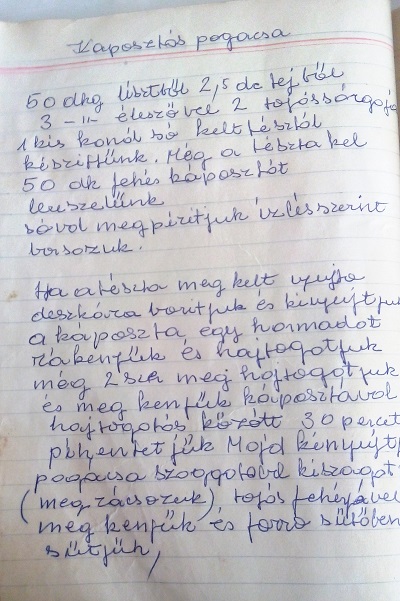 Káposztás pogácsa
50 dkg lisztből 2,5 dc tejből
3 -"- élesztővel 2 tojássárgája
1 kis kanál só kelt tésztát
készítünk. Még a tészta kel
50 dk fehés káposztát
leuszelünk
sóval megpirítjuk ízlésszerint
borsozuk.
Ha a tészta meg kelt
deszkára borítjuk és kinyújtjuk
a káposzta egy harmadát
rákenjük és hajtogatjuk
még 2 szer meg hajtogatjuk
és meg kenjük káposztával
hajtogatás között 30 percet
pihentetjük Majd kinyújt
pogácsa szaggatóval kiszagat
(meg rácsozuk), tojás fehérjével
meg kenjük és forró sütőben
sütjük,